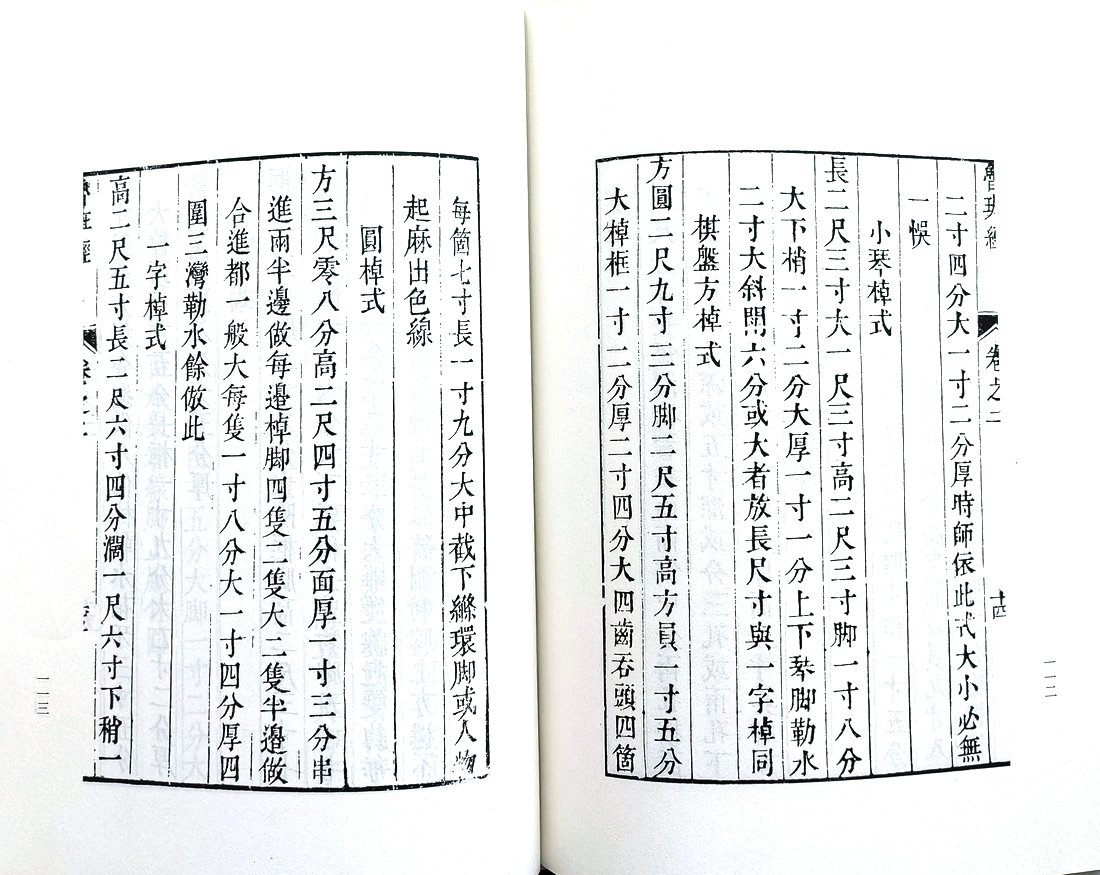 魯班經
卷之二
十四
二寸四分大一寸二分厚時師依此式大小必無
一悞
小琴棹式
長二尺三寸大一尺三寸高二尺三寸脚一寸八分
大下梢一寸二分大厚一寸一分上下琴脚勒水
二寸大斜閗六分或大者放長尺寸與一字棹同
棋盤方棹式
方圓二尺九寸三分脚二尺五寸高方員一寸五分
大棹框一寸二分厚二寸四分大四齒吞頭四箇
一一二
每箇七寸長一寸九分大中截下縧環脚或人物
起麻出色線
圓棹式
方三尺零八分高二尺四寸五分面厚一寸三分串
進兩半邊做每邊棹脚四隻二隻大二隻半邊做
合進都一般大每隻一寸八分大一寸四分厚四
圍三灣勒水餘倣此
一字棹式
高二尺五寸長二尺六寸四分濶一尺六寸下稍一
一一三